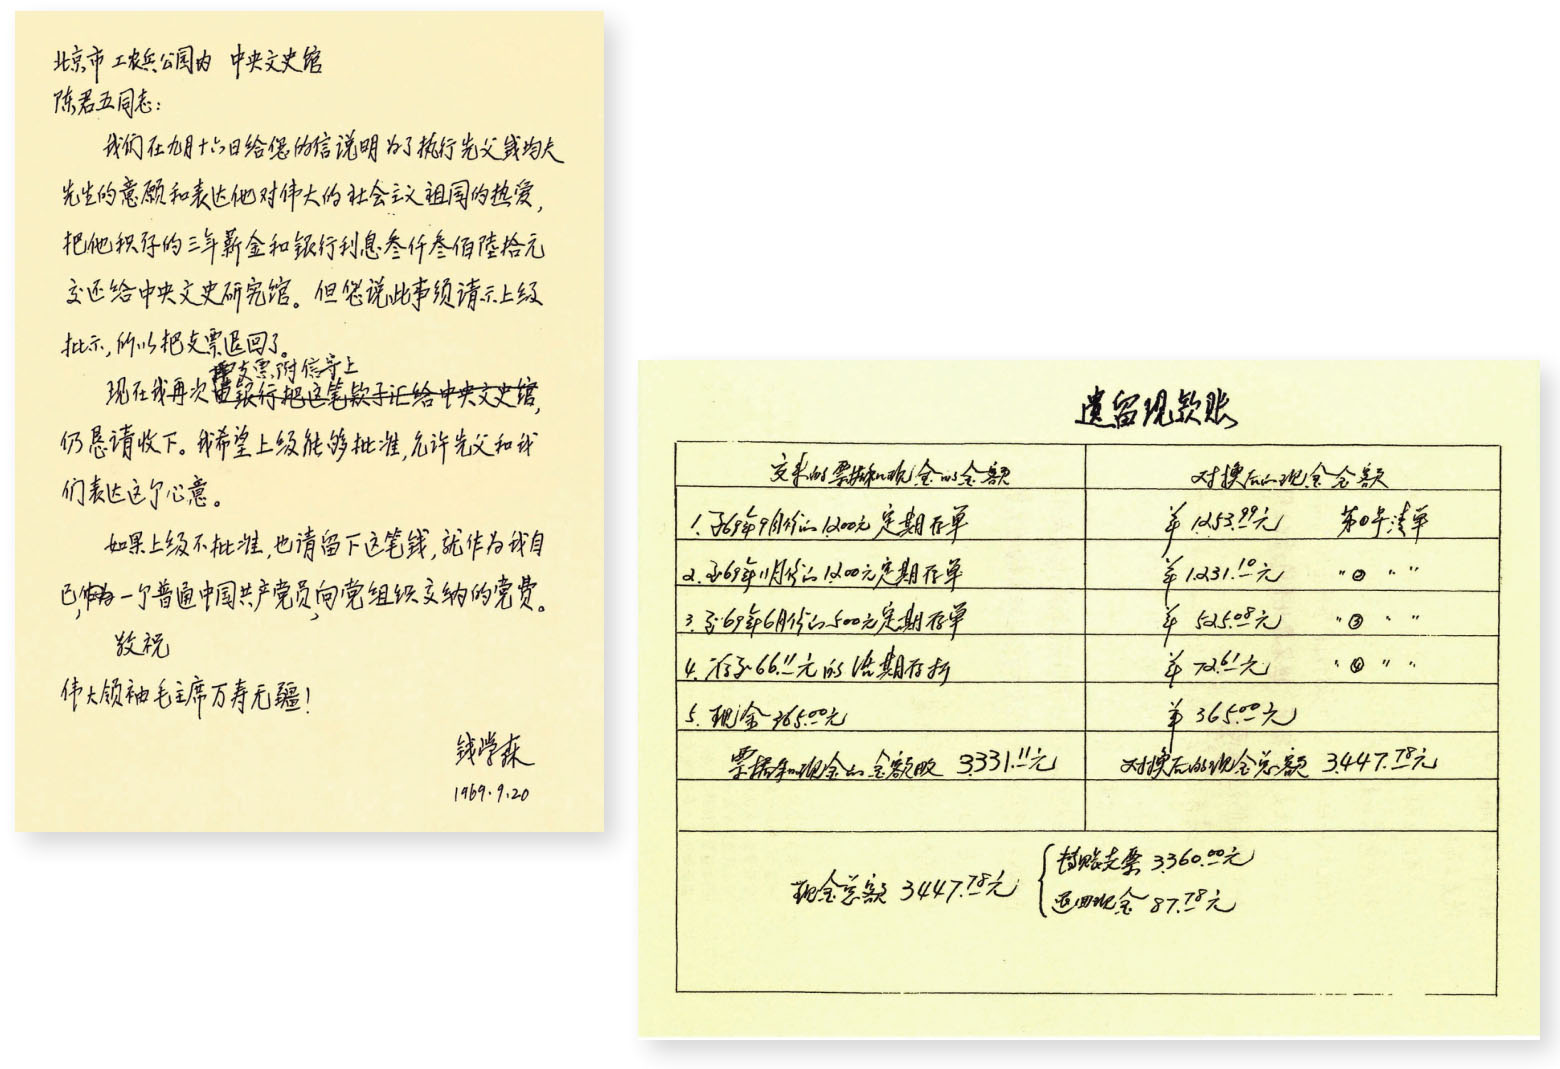 北京市工农兵公园内 中央文史馆
陈君五同志：
我们在九月十六日给您的信说明为了执行先父钱均夫
先生的意愿和表达他对伟大的社会主义祖国的热爱，
把他积存的三年薪金和银行利息叁仟叁佰陆拾元
交还给中央文史研究馆。但您说此事须请示上级
批示，所以把支票退回了。
支票附信寄上
现在我再次由银行把这笔款子汇给中央文史馆，
仍恳请收下。我希望上级能够批准，允许先父和我
们表达这个心意。
如果上级不批准，也请留下这笔钱，就作为我自
己，作为一个普通中国共产党员，向党组织交纳的党费。
敬祝
伟大领袖毛主席万寿无疆！
钱学森
1969.9.20
遗留现款账
交来的票据和现金的金额 对换后的现金金额
1. 至69年9月份的1,200元定期存单 ￥1253.99元 第①号清单
2. 至69年11月份的1,200元定期存单 ￥1,231.10元 〃②〃〃
3. 至69年6月份的500元定期存单 ￥525.08元 〃③〃〃
4. 存至66.11元的活期存折 ￥72.61元 〃④〃〃
5. 现金365.00元 ￥365.00元
票据和现金的金额 3,331.11元 对换后的现金总额 3,447.78元
现金总额 3,447.78元
转账支票 3,360.00元
退回现金 87.78元